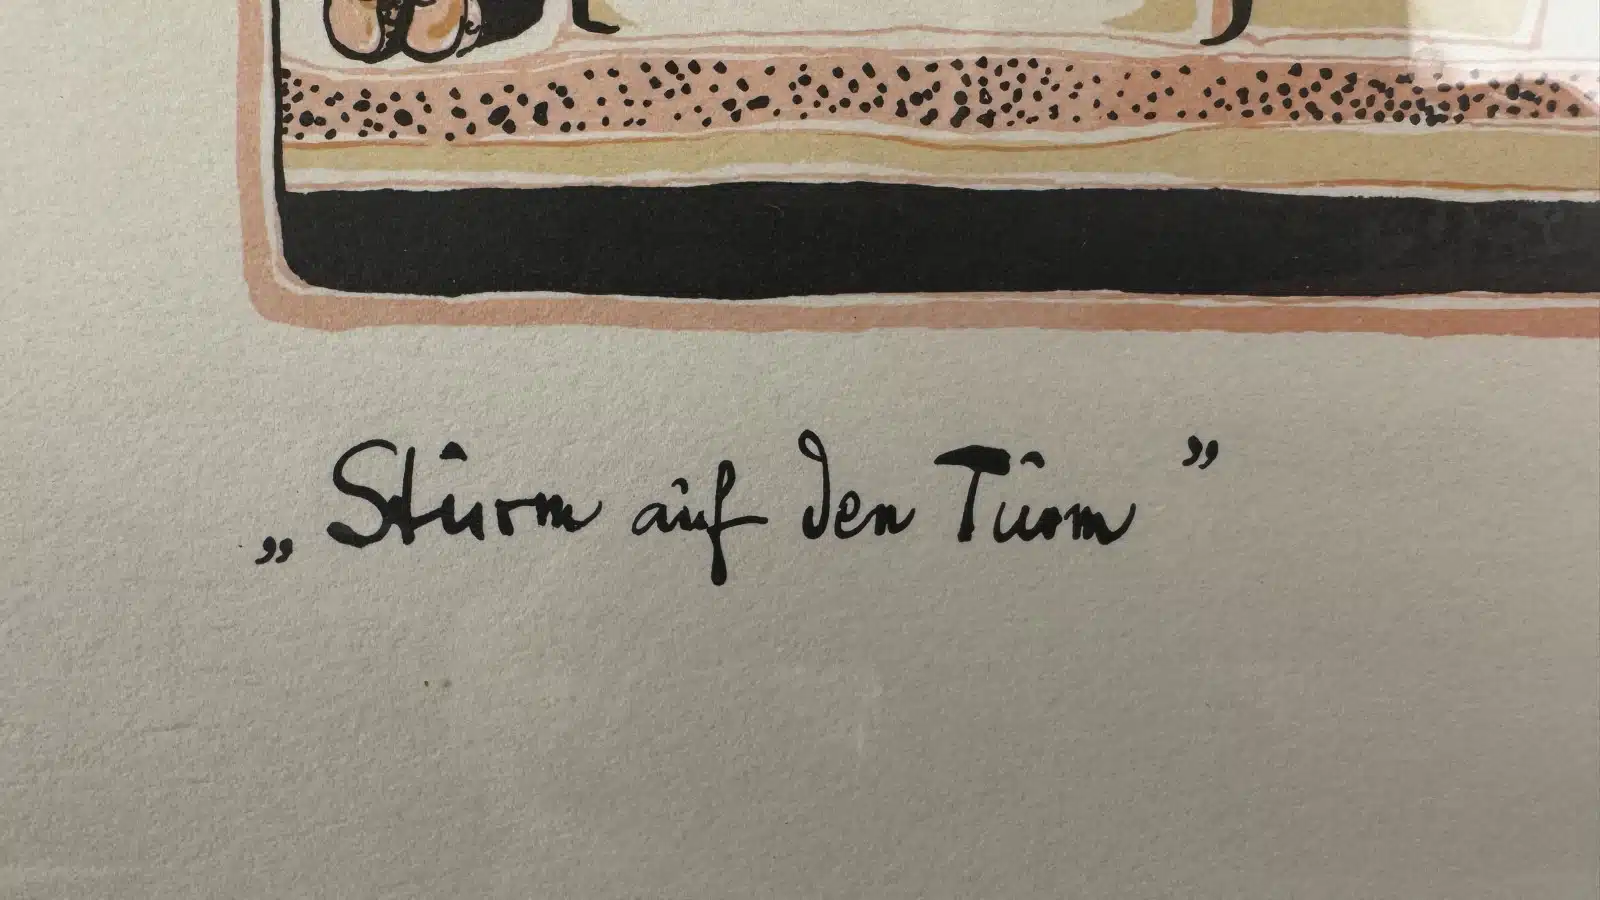 „Sturm auf den Turm”